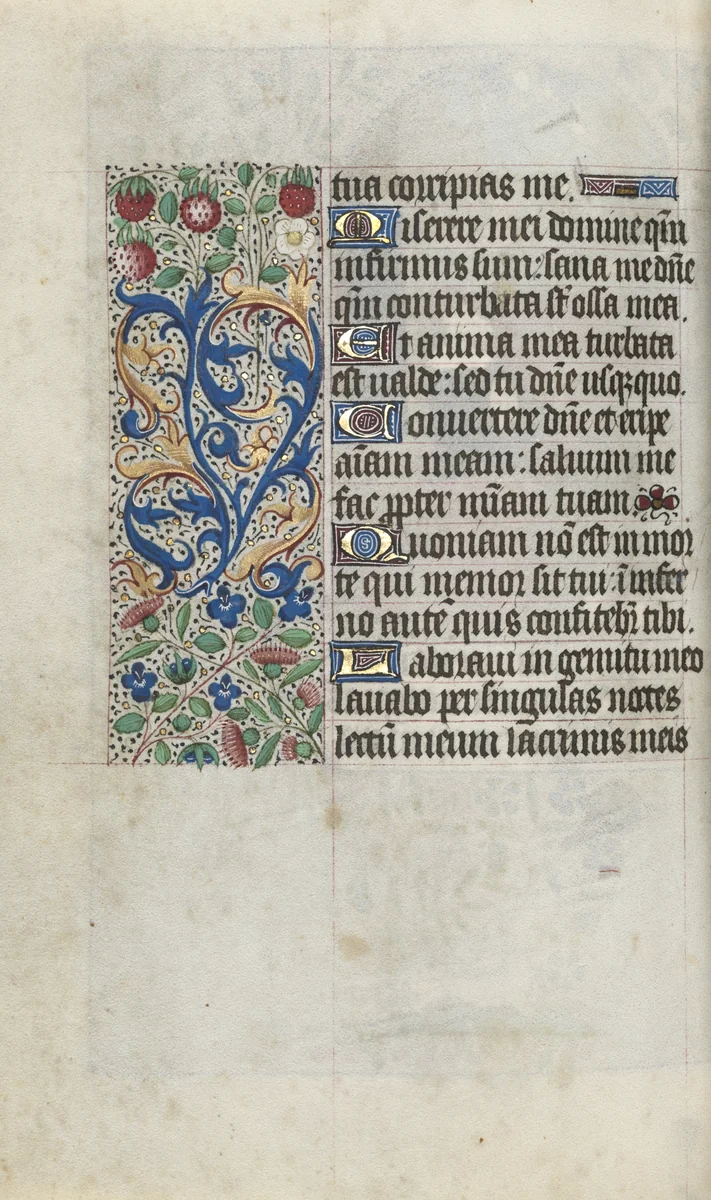 tua corripias me.
Miserere mei domine qm̄
infirmus sum: sana me dn̄e
qm̄ conturbata st̄ ossa mea.
Et anima mea turbata
est ualde: sed tu dn̄e usqꝫ quo.
Conuertere dn̄e et eripe
aīam meam: saluum me
fac ꝓpter mīam tuam.
Quoniam nō est in mor
te qui memor sit tui: ī infer
no autē quis confitebr̄ tibi.
Laboraui in gemitu meo
lauabo per singulas noctes
lectū meum lacrimis meis